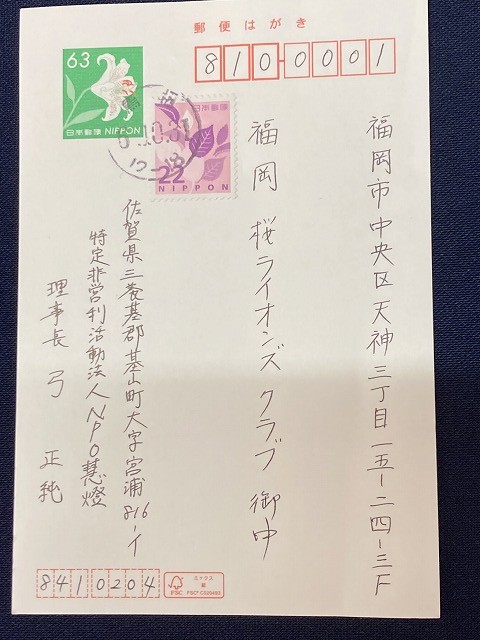 郵便はがき
810-0001
63
日本郵便 NIPPON
日本郵便
22
NIPPON
6.10.31
12-18
福岡市中央区天神三丁目一五-二四-三F
福岡 桜ライオンズクラブ 御中
佐賀県三養基郡基山町大字宮浦816-イ
特定非営利活動法人NPO慧燈
理事長 弓 正純
8410204
ミックス
紙
FSC